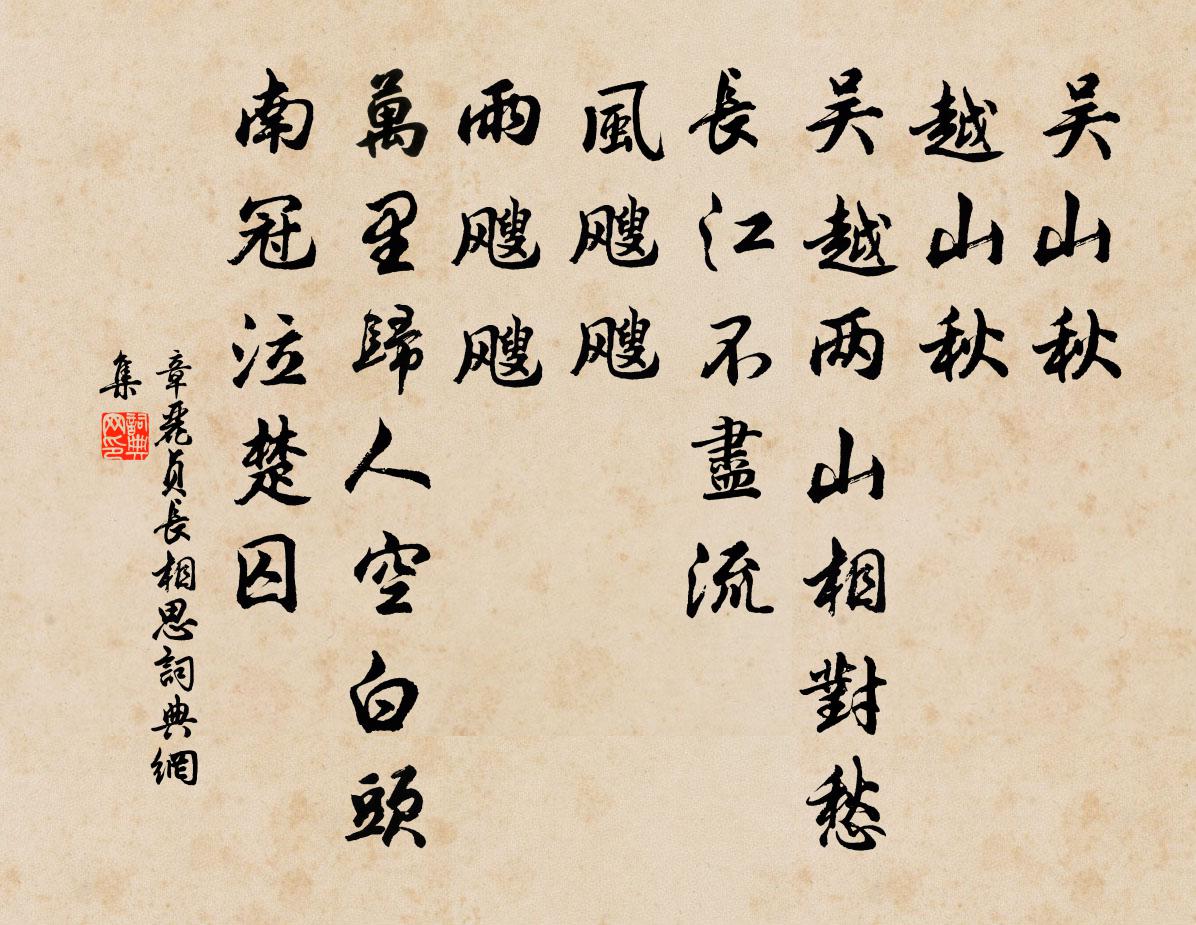 吴山秋
越山秋
吴越两山相對愁
長江不盡流
風颼颼
雨颼颼
萬里歸人空白頭
南冠泣楚囚
章麗貞長相思詞典網
集
詞典
网印